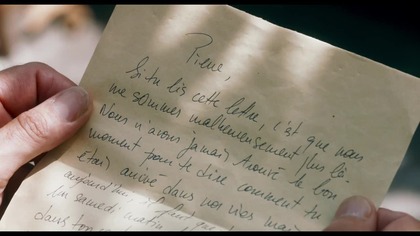 Pierre,
Si tu lis cette lettre, c'est que nous
ne sommes malheureusement plus là.
Nous n'avons jamais trouvé le bon
moment pour te dire comment tu
étais arrivé dans nos vies mais
aujourd'hui, il faut que
Un samedi matin
dans ton